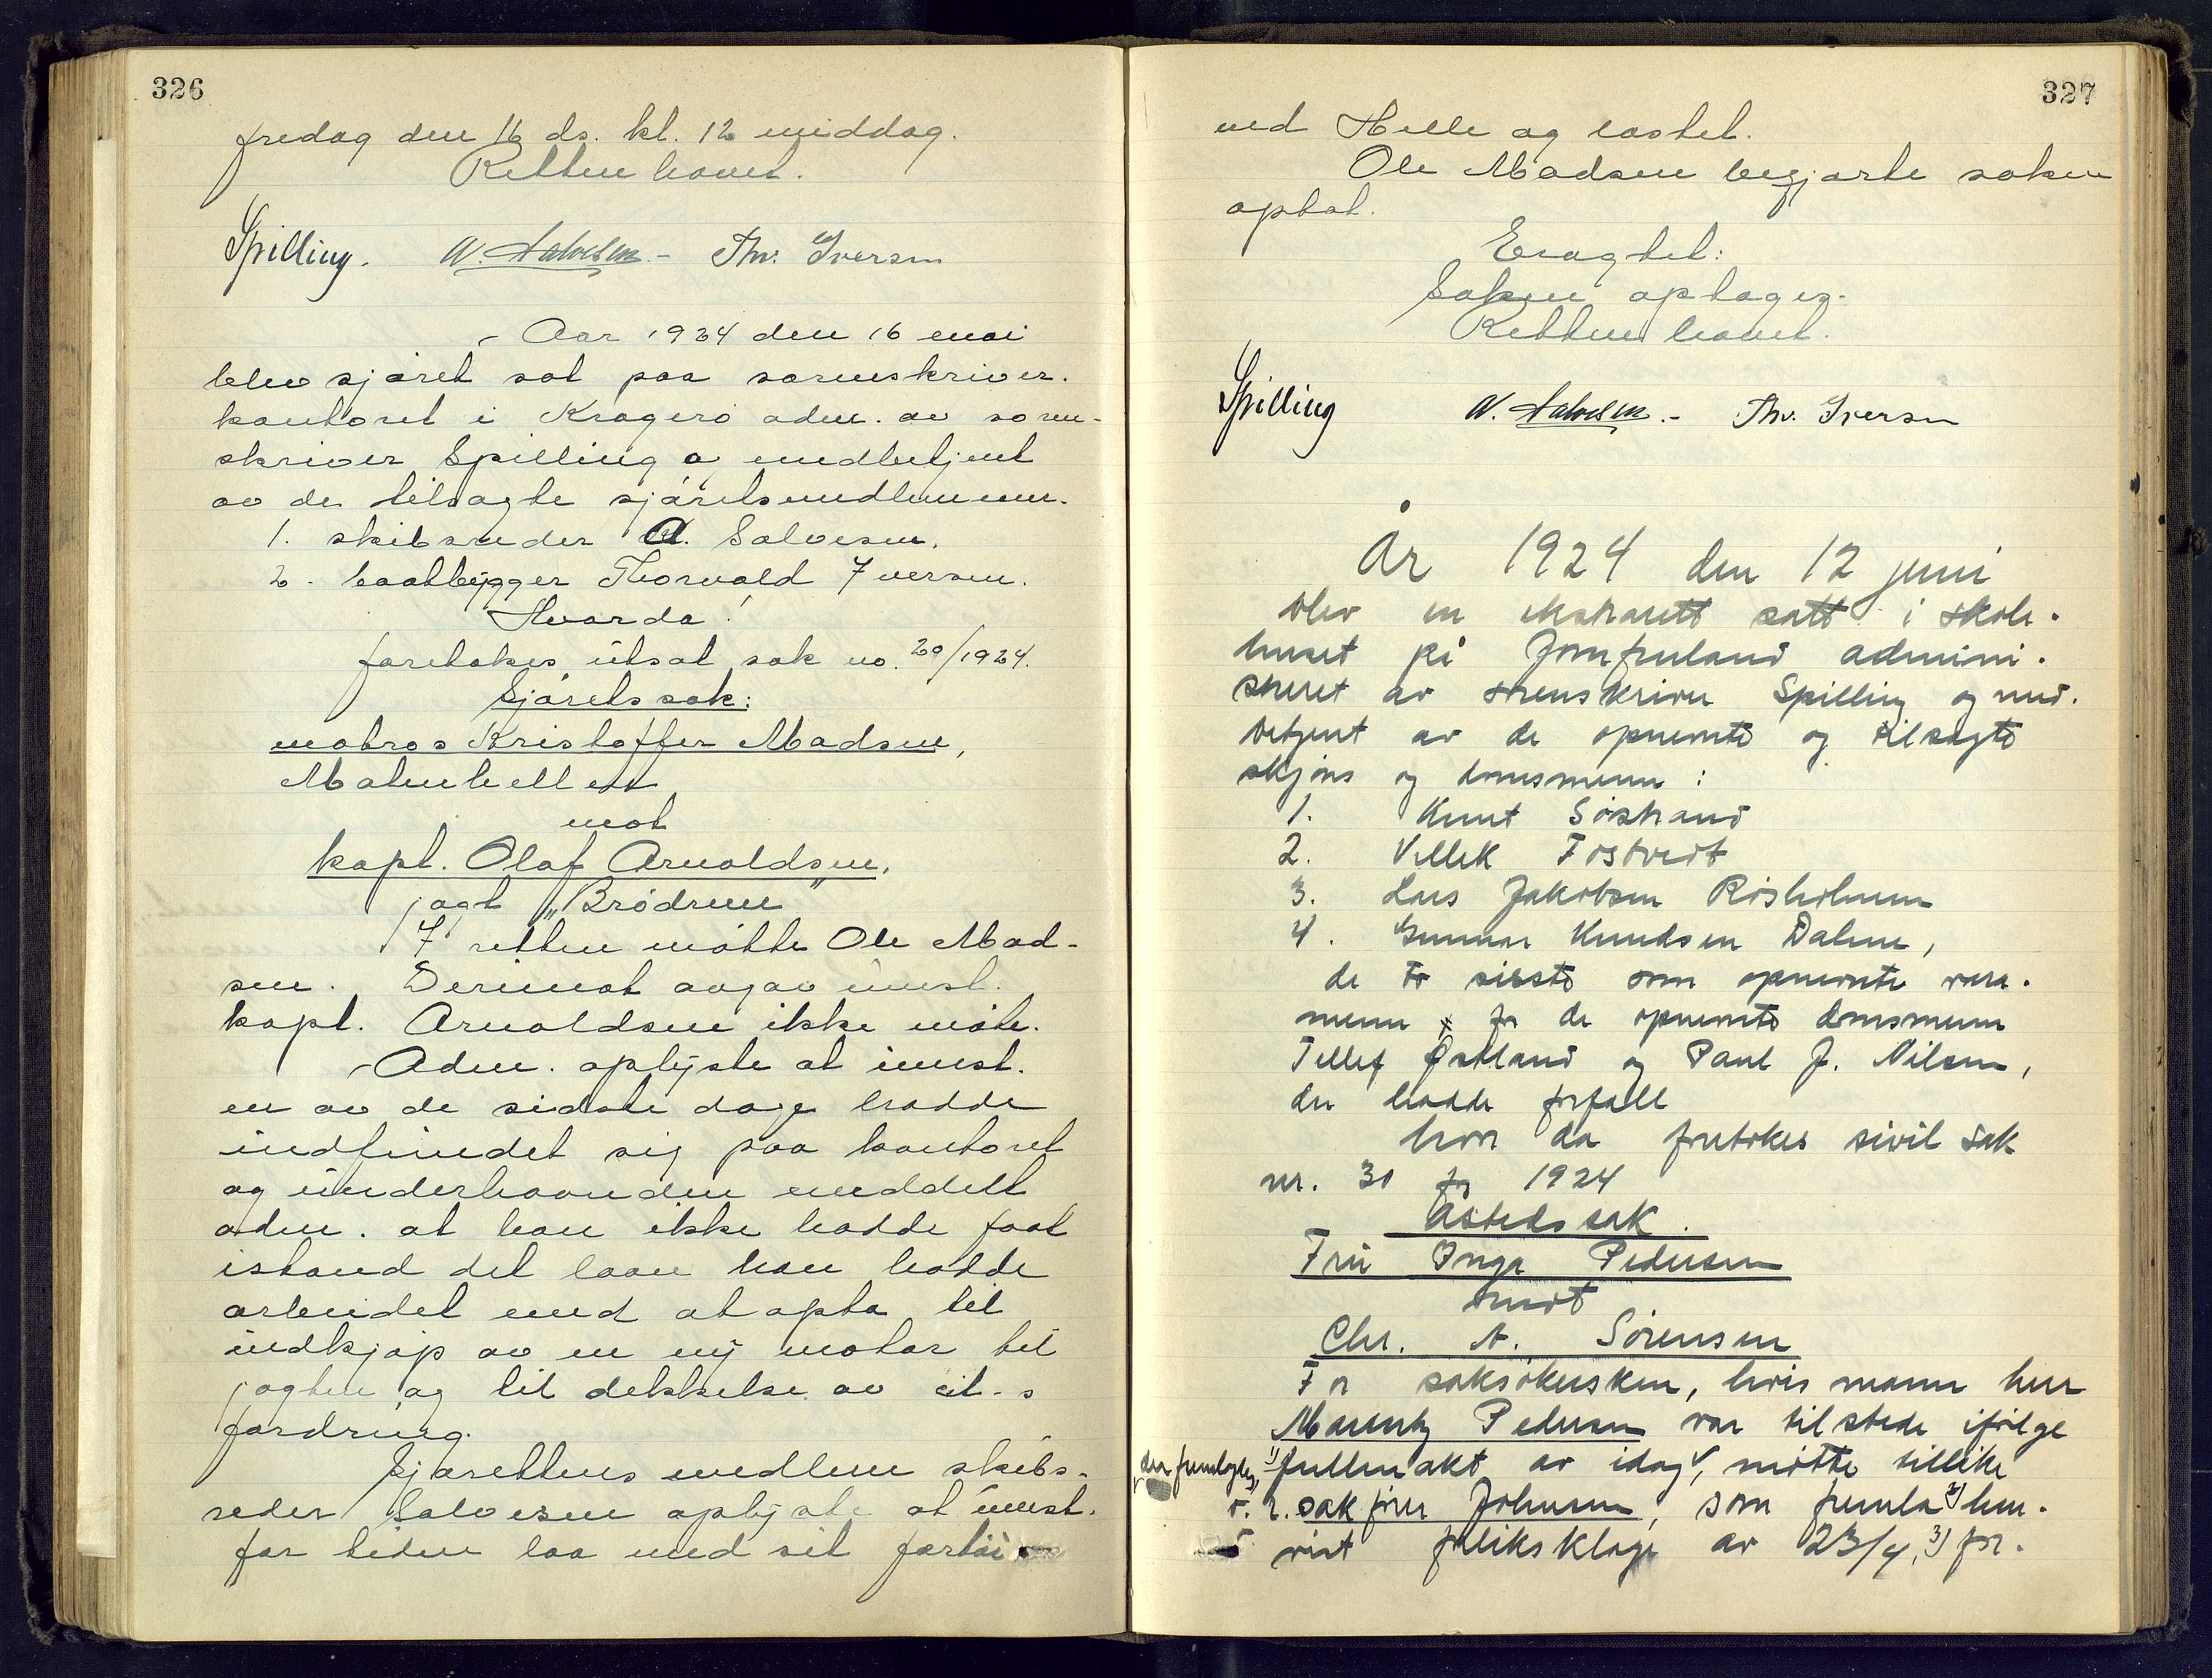 326
fredag den 16 ds. kl. 12 middag.
Retten hævet.
Spilling. A. Salvesen. - Thv. Iversen
Aar 1924 den 16 mai
blev sjøret sat paa sorenskriver-
kontoret i Kragerø adm. av soren-
skriver Spilling o medbetjent
av de tilsagte sjøretsmedlemmer.
1. skibsreder A. Salvesen.
2. baatbygger Thorvald Iversen.
Hvorda!
foretokes utsat sak no. 20/1924.
Sjøretssak:
matros Kristoffer Madsen,
mot
kapt. Olaf Arnoldsen,
jagt "Brødrene"
I retten møtte Ole Mad-
sen. Derimot avgav innst.
kapt. Arnoldsen ikke møte.
Adm. oplyste at innst.
en av de sidste dage hadde
indfundet sig paa kontoret
og underhaanden meddelt
adm. at han ikke hadde faat
istand det laan han hadde
arbeidet med at opta til
indkjøp av en ny motor til
jagten og til dekkelse av cit-s
fordring.
Sjørettens medlem skibs-
reder Salvesen oplyste at innst.
for tiden laa med sit fartøi
327
ved Helle og lastet.
Ole Madsen begjærte saken
optat.
Eragtet:
Saken optages.
Retten hævet.
Spilling A. Salvesen. - Thv. Iversen
År 1924 den 12 juni
blev en ekstrarett satt i skole-
huset på Jomfruland admini-
streret av sorenskriver Spilling og med-
betjent av de opnevnte og tilsagte
skjøns og domsmenn:
1. Knut Søstrand
2. Vellek Tostvedt
3. Lars Jakobsen Rosholmen
4. Gunnar Knudsen Dalene,
de to sisste som opnevnte vara-
menn for de opnevnte domsmenn
Tellef Østland og Paul J. Nilsen,
der hadde forfall
hvor da foretokes sivil sak
nr. 30 for 1924
Åstedssak.
Fru Inga Pedersen
mot
Chr. A. Sørensen
For saksøkersken, hvis mann herr
Marenty Pedersen var tilstede ifølge
der fremlagdes, 1) fullmakt av idag, møtte tillike
o. r. sakfører Johnsen, som fremla 2) hen-
vist forliksklage av 23/4, 3) for-